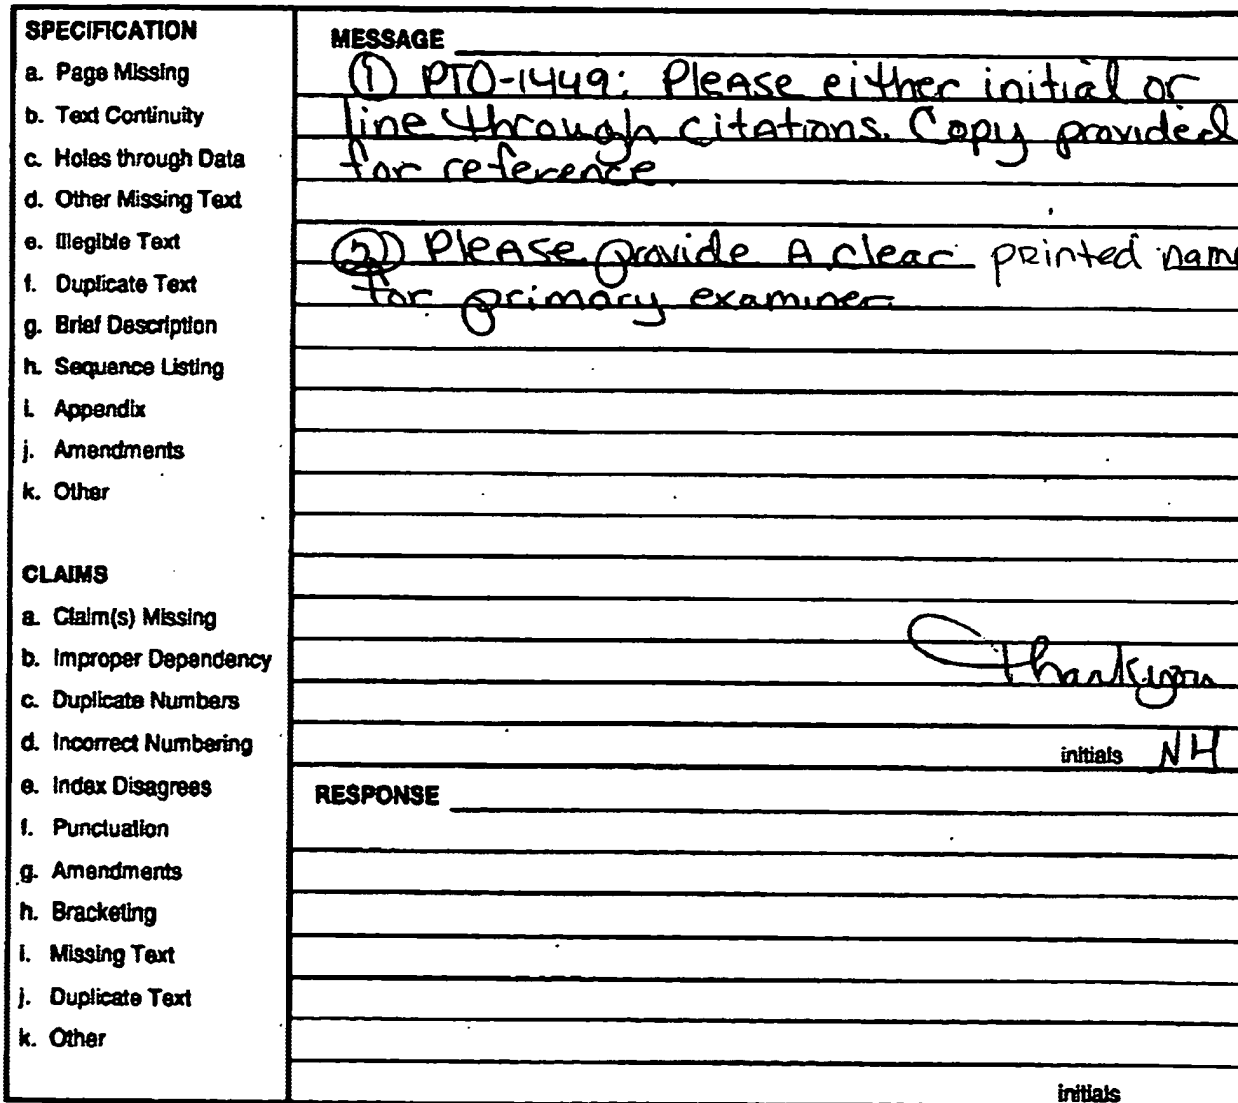 SPECIFICATION
a. Page Missing
b. Text Continuity
c. Holes through Data
d. Other Missing Text
e. Illegible Text
f. Duplicate Text
g. Brief Description
h. Sequence Listing
i. Appendix
j. Amendments
k. Other
CLAIMS
a. Claim(s) Missing
b. Improper Dependency
c. Duplicate Numbers
d. Incorrect Numbering
e. Index Disagrees
f. Punctuation
g. Amendments
h. Bracketing
i. Missing Text
j. Duplicate Text
k. Other
MESSAGE
① PTO-1449: Please either initial or
line through citations. Copy provided
for reference.
② Please provide A clear printed name
for primary examiner
Thank you
initials NH
RESPONSE
initials